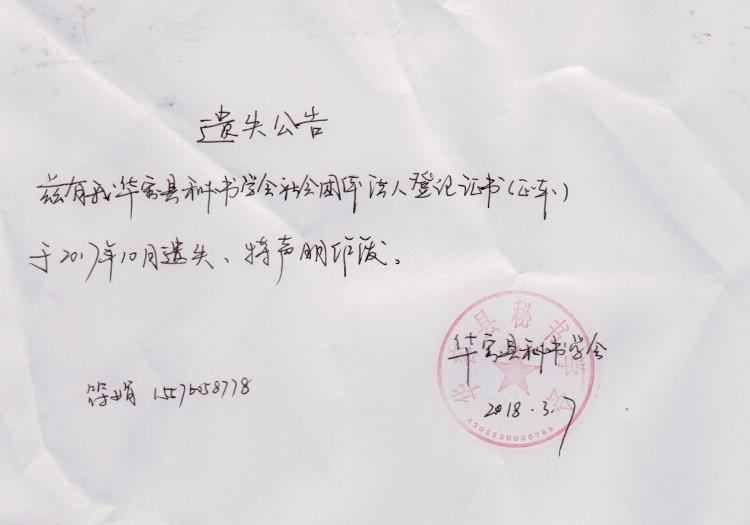 遗失公告
兹有我华容县秘书学会社会团体法人登记证书(正本)
于2017年10月遗失、特声明作废。
华容县秘书学会
华容县秘书学会
2018.3.7
4306230000785